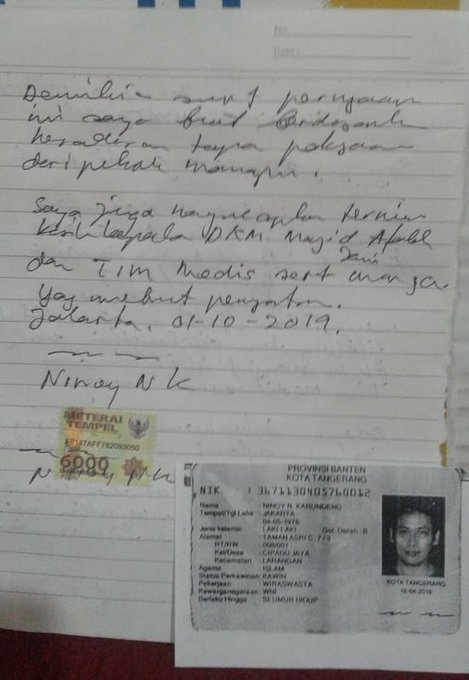 No.
Date:
Demikian surat pernyataan
ini saya buat berdasarkan
kesadaran tanpa paksaan
dari pihak manapun.
Saya juga mengucapkan terima
kasih kepada DKM Masjid
Jami
dan TIM Medis serta
Yang
Jakarta, 01-10-2019.
Ninoy N K
METERAI
TEMPEL
6000
Ninoy NK
PROVINSI BANTEN
KOTA TANGERANG
NIK : 3671130405760012
Nama : NINOY N. KARUNDENG
Tempat/Tgl Lahir : JAKARTA
Jenis kelamin : LAKI LAKI Gol Darah : B
Alamat : TAMAN ASRI C 7/9
RT/RW
Kel/Desa : CIPADU JAYA
Kecamatan : LARANGAN
Agama : ISLAM
Status Perkawinan : KAWIN
Pekerjaan : WIRASWASTA
Kewarganegaraan : WNI
Berlaku Hingga : SEUMUR HIDUP
KOTA TANGERANG